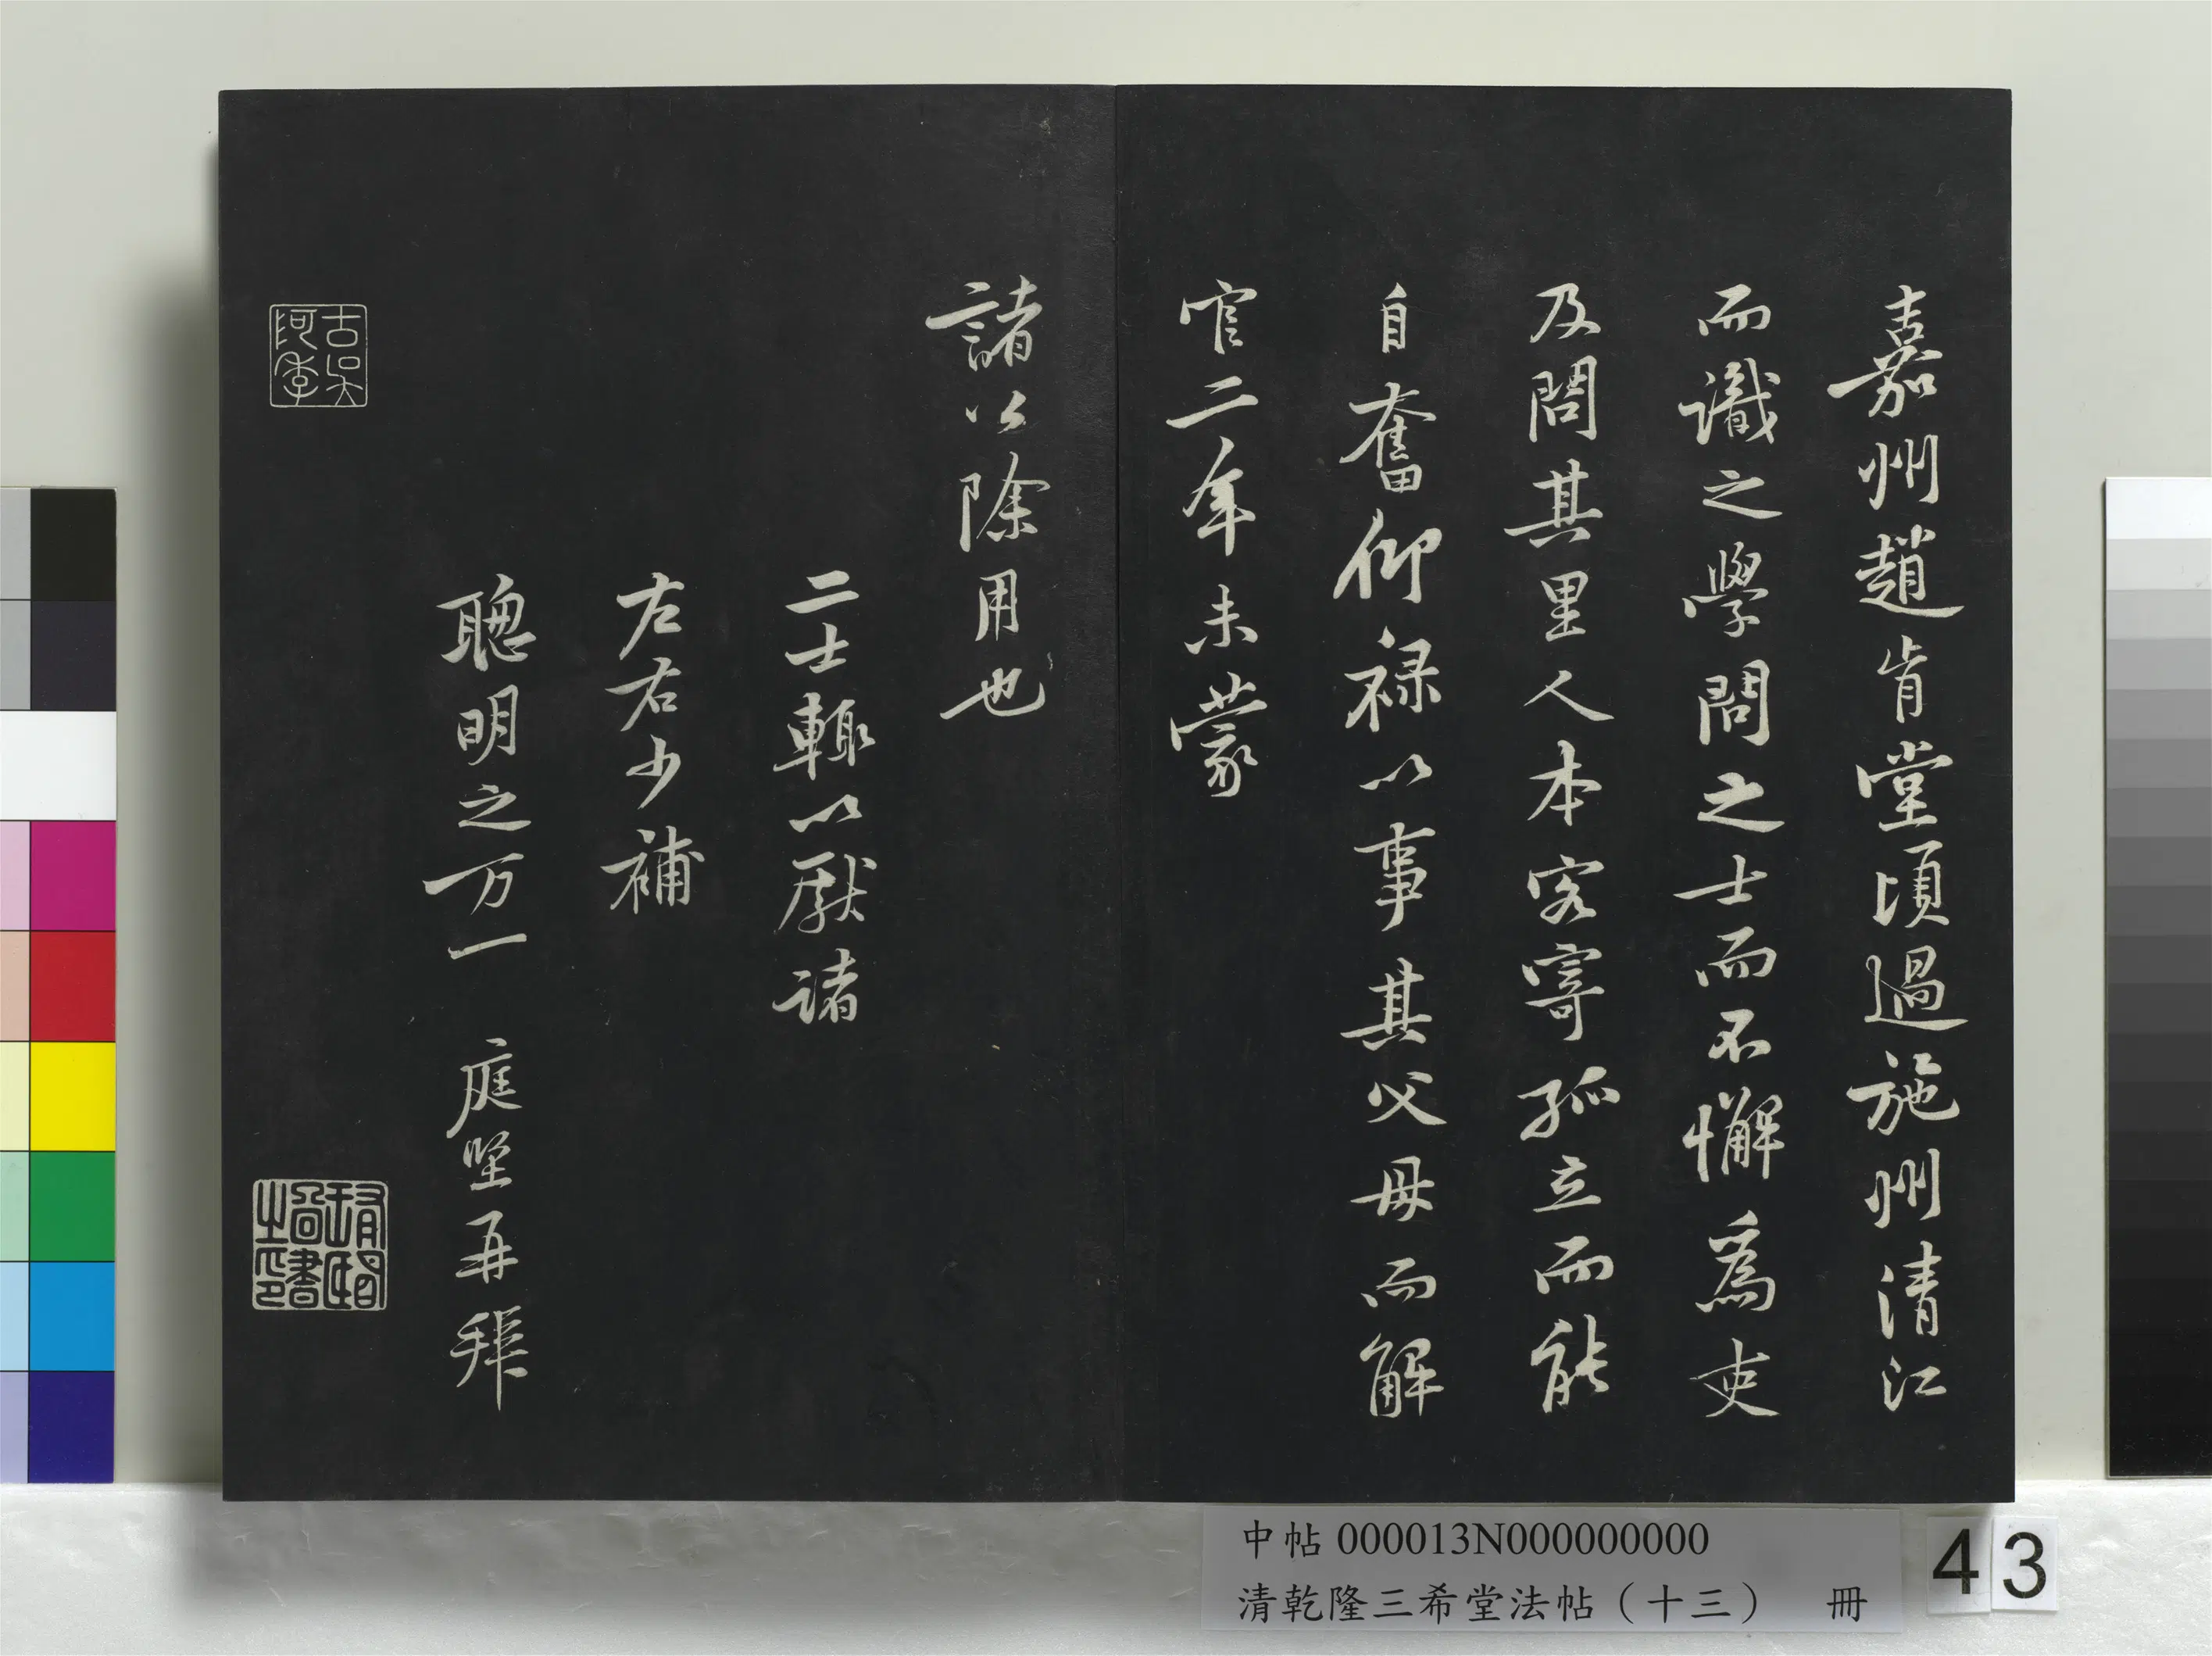 嘉州趙肯堂頃過施州清江
而識之學問之士而不懈為吏
及問其里人本客寄孤立而能
自奮仰祿以事其父母而解
官二年未蒙
諸公除用也
二士輒以獻諸
左右少補
聰明之万一 庭堅再拜
中帖 000013N000000000
清乾隆三希堂法帖（十三） 冊
43